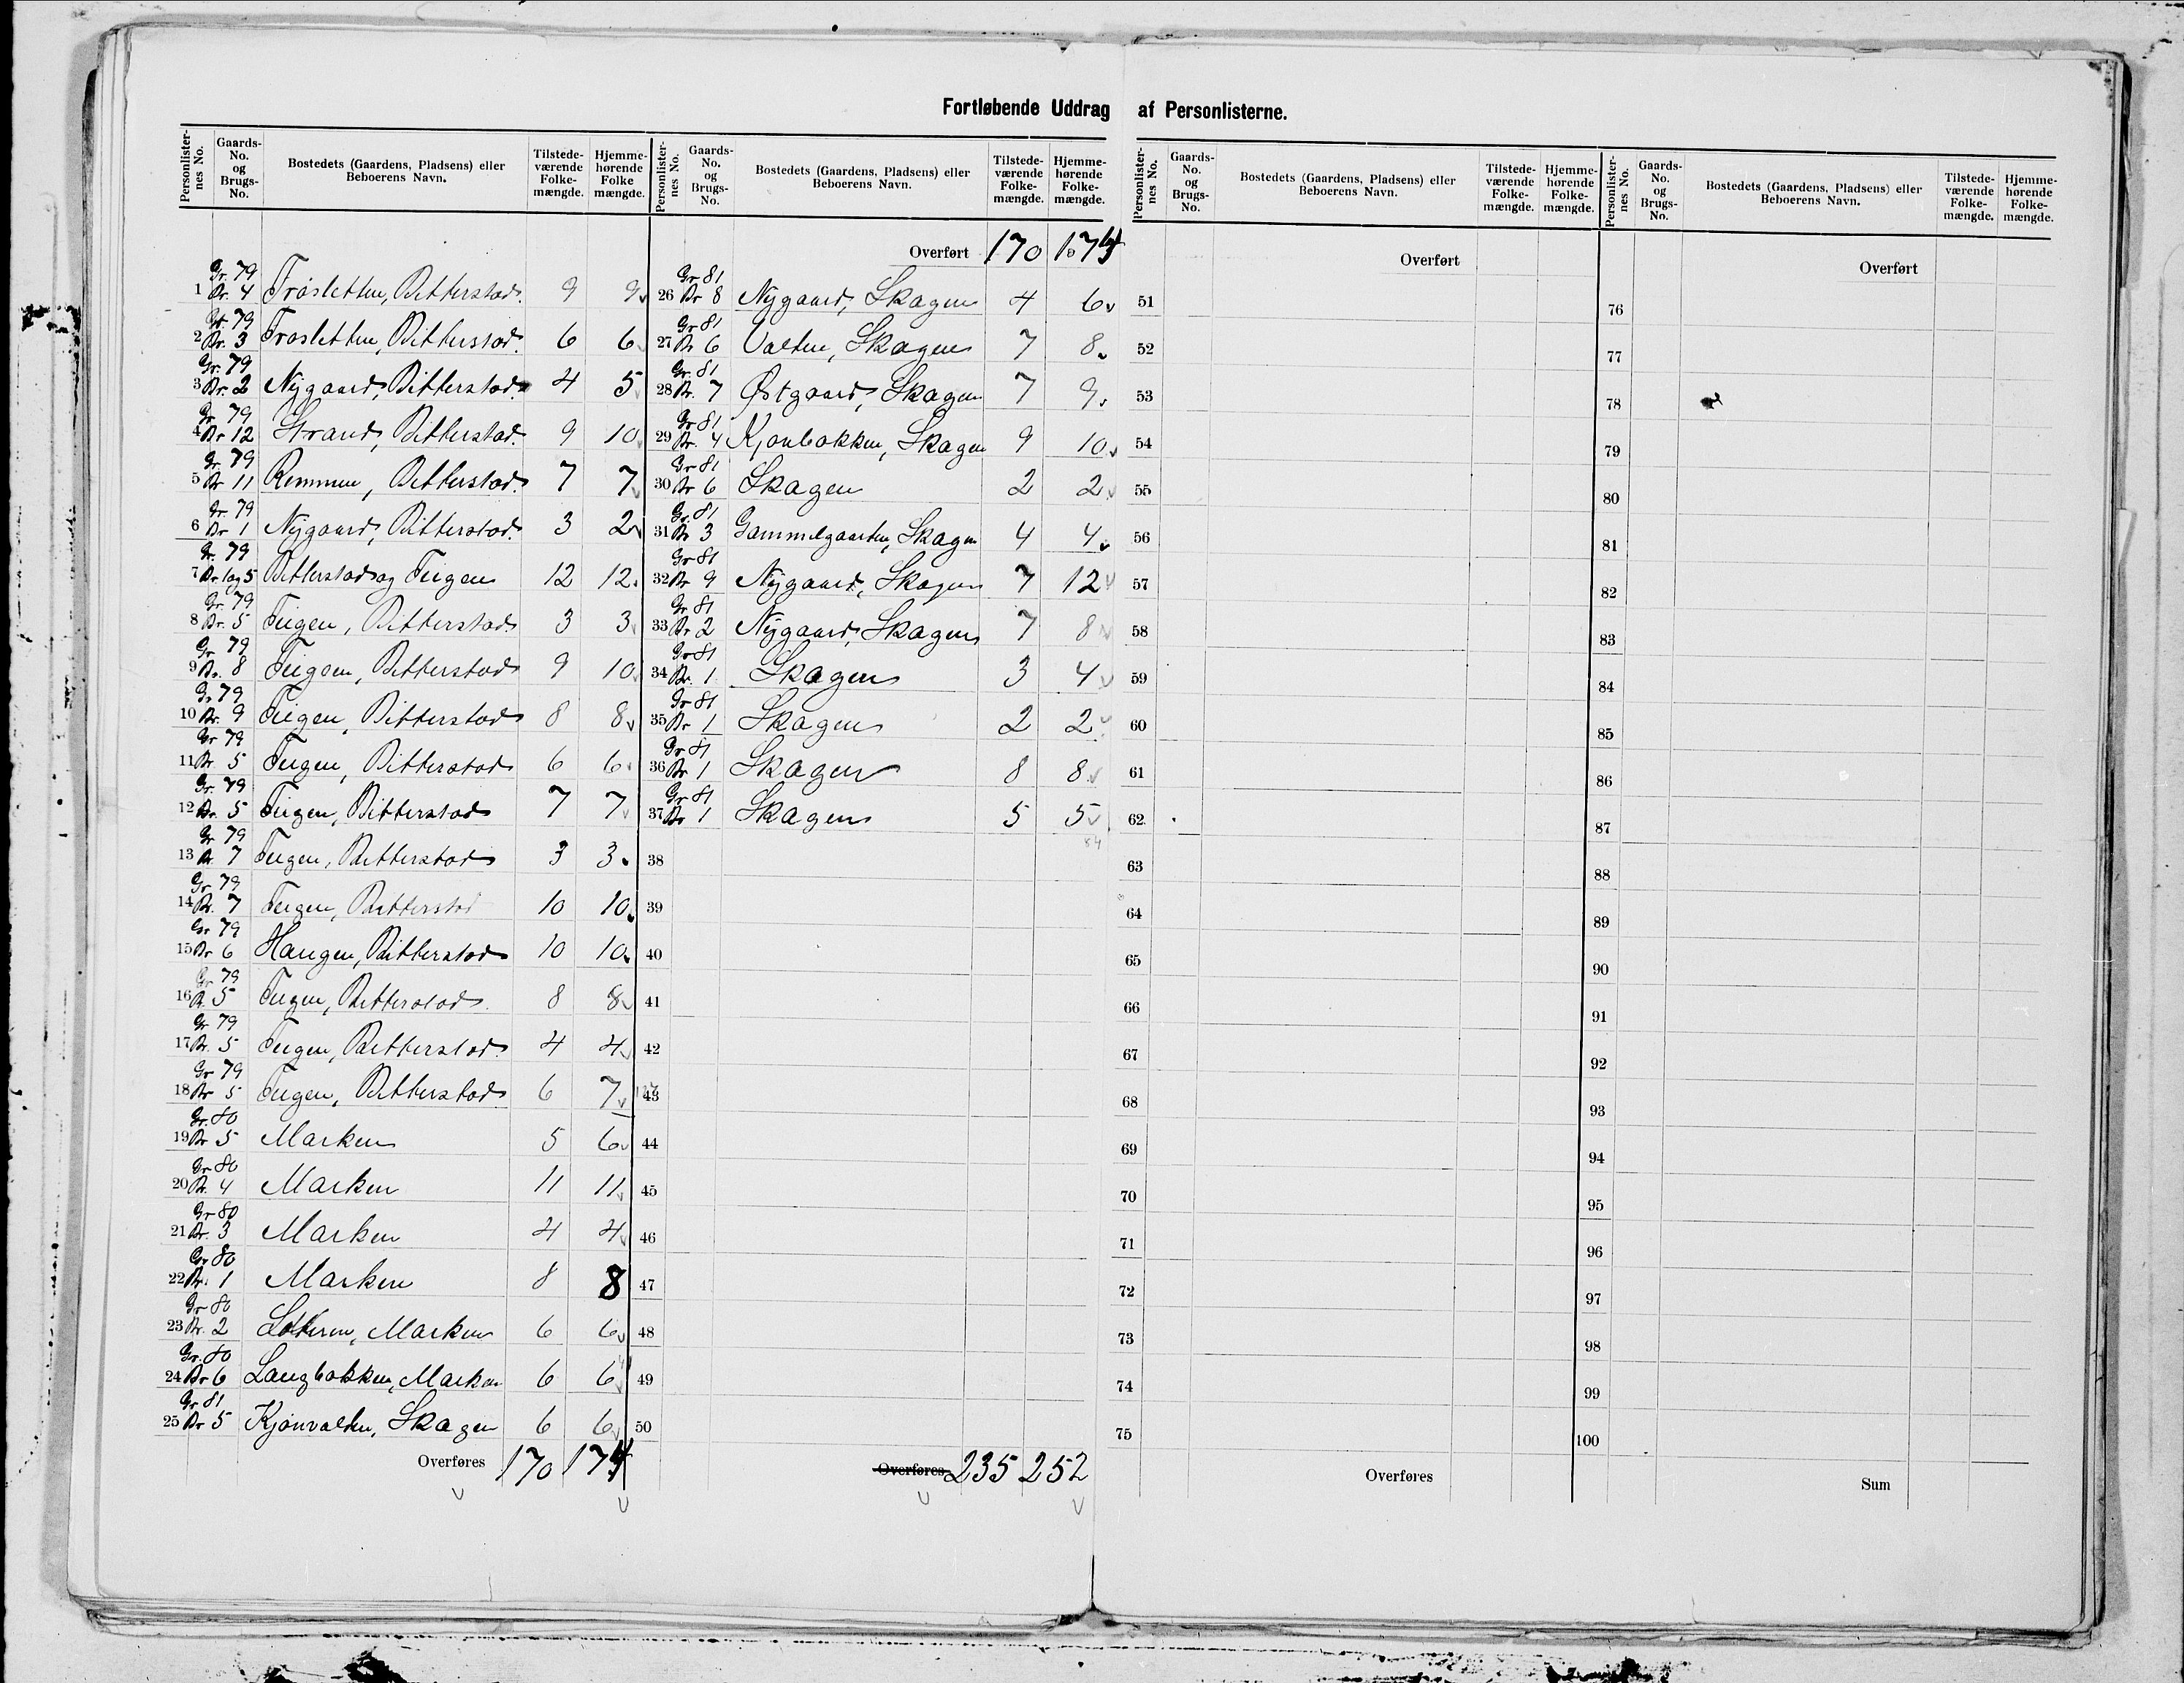 Fortløbende Uddrag af Personlisterne.
Personlister-nes No. Gaards-No. og Brugs-No. Bostedets (Gaardens, Pladsens) eller Beboerens Navn. Tilstede-værende Folke-mængde. Hjemme-hørende Folke mængde.
Gr. 79
1 Br. 4 Træsletten, Bitterstad. 9 9
Gr. 79
2 Br. 3 Træsletten, Bitterstad. 6 6
Gr. 79
3 Br. 2 Nygaard, Bitterstad. 4 5
Gr. 79
4 Br 12 Strand, Bitterstad. 9 10
Gr. 79
5 Br 11 Remmen, Bitterstad. 7 7
Gr. 79
6 Br 1 Nygaard, Bitterstad. 3 2
Gr. 79
7 Br 1 og 5 Bitterstad og Teigen 12 12
Gr. 79
8 Br. 5 Teigen, Bitterstad 3 3
Gr. 79
9 Br. 8 Teigen, Bitterstad 9 10
Gr 79
10 Br. 9 Teigen, Bitterstad 8 8
Gr 79
11 Br. 5 Teigen, Bitterstad 6 6
Gr. 79
12 Br. 5 Teigen, Bitterstad 7 7
Gr 79
13 Br. 7 Teigen, Bitterstad 3 3
Gr 79
14 Br. 7 Teigen, Bitterstad 10 10
Gr 79
15 Br 6 Haugen, Bitterstad 10 10
Gr 79
16 Br. 5 Teigen, Bitterstad. 8 8
Gr 79
17 Br. 5 Teigen, Bitterstad. 4 4
Gr 79
18 Br 5 Teigen, Bitterstad 6 7
Gr. 80
19 Br 5 Marken 5 6
Gr 80
20 Br. 4 Marken 11 11
Gr 80
21 Br. 3 Marken 4 4
Gr 80
22 Br. 1 Marken 8 8
Gr 80
23 Br. 2 Marken 6 6
Gr. 80
24 Br 6 Langbakken, Marken 6 6
Gr 81
25 Br 5 Kjønvalten, Skagen 6 6
Overføres 170 174
Personlister-nes No. Gaards-No. og Brugs-No. Bostedets (Gaardens, Pladsens) eller Beboerens Navn. Tilstede-værende Folke-mængde. Hjemme-hørende Folke-mængde.
Overført 170 174
Gr 81
26 Br 8 Nygaard, Skagen 4 6
Gr 81
27 Br 6 Valten, Skagen 7 8
Gr. 81
28 Br. 7 Østgaard, Skagen 7 9
Gr 81
29 Br. 4 Kjønbakken, Skagen 9 10
Gr 81
30 Br 6 Skagen 2 2
Gr. 81
31 Br 3 Gammelgaarden, Skagen 4 4
Gr 81
32 Br 9 Nygaard, Skagen 7 12
Gr 81
33 Br 2 Nygaard, Skagen 7 8
Gr 81
34 Br. 1 Skagen 3 4
Gr 81
35 Br 1 Skagen 2 2
Gr 81
36 Br 1 Skagen 8 8
Gr 81
37 Br 1 Skagen 5 5
84
38
39
40
41
42
43
44
45
46
47
48
49
50
Overføres 235 252
Personlister-nes No. Gaards-No. og Brugs-No. Bostedets (Gaardens, Pladsens) eller Beboerens Navn. Tilstede-værende Folke-mængde. Hjemme-hørende Folke-mængde.
Overført
51
52
53
54
55
56
57
58
59
60
61
62
63
64
65
66
67
68
69
70
71
72
73
74
75
Overføres
Personlister-nes No. Gaards-No. og Brugs-No. Bostedets (Gaardens, Pladsens) eller Beboerens Navn. Tilstede-værende Folke-mængde. Hjemme-hørende Folke-mængde.
Overført
76
77
78
79
80
81
82
83
84
85
86
87
88
89
90
91
92
93
94
95
96
97
98
99
100
Sum